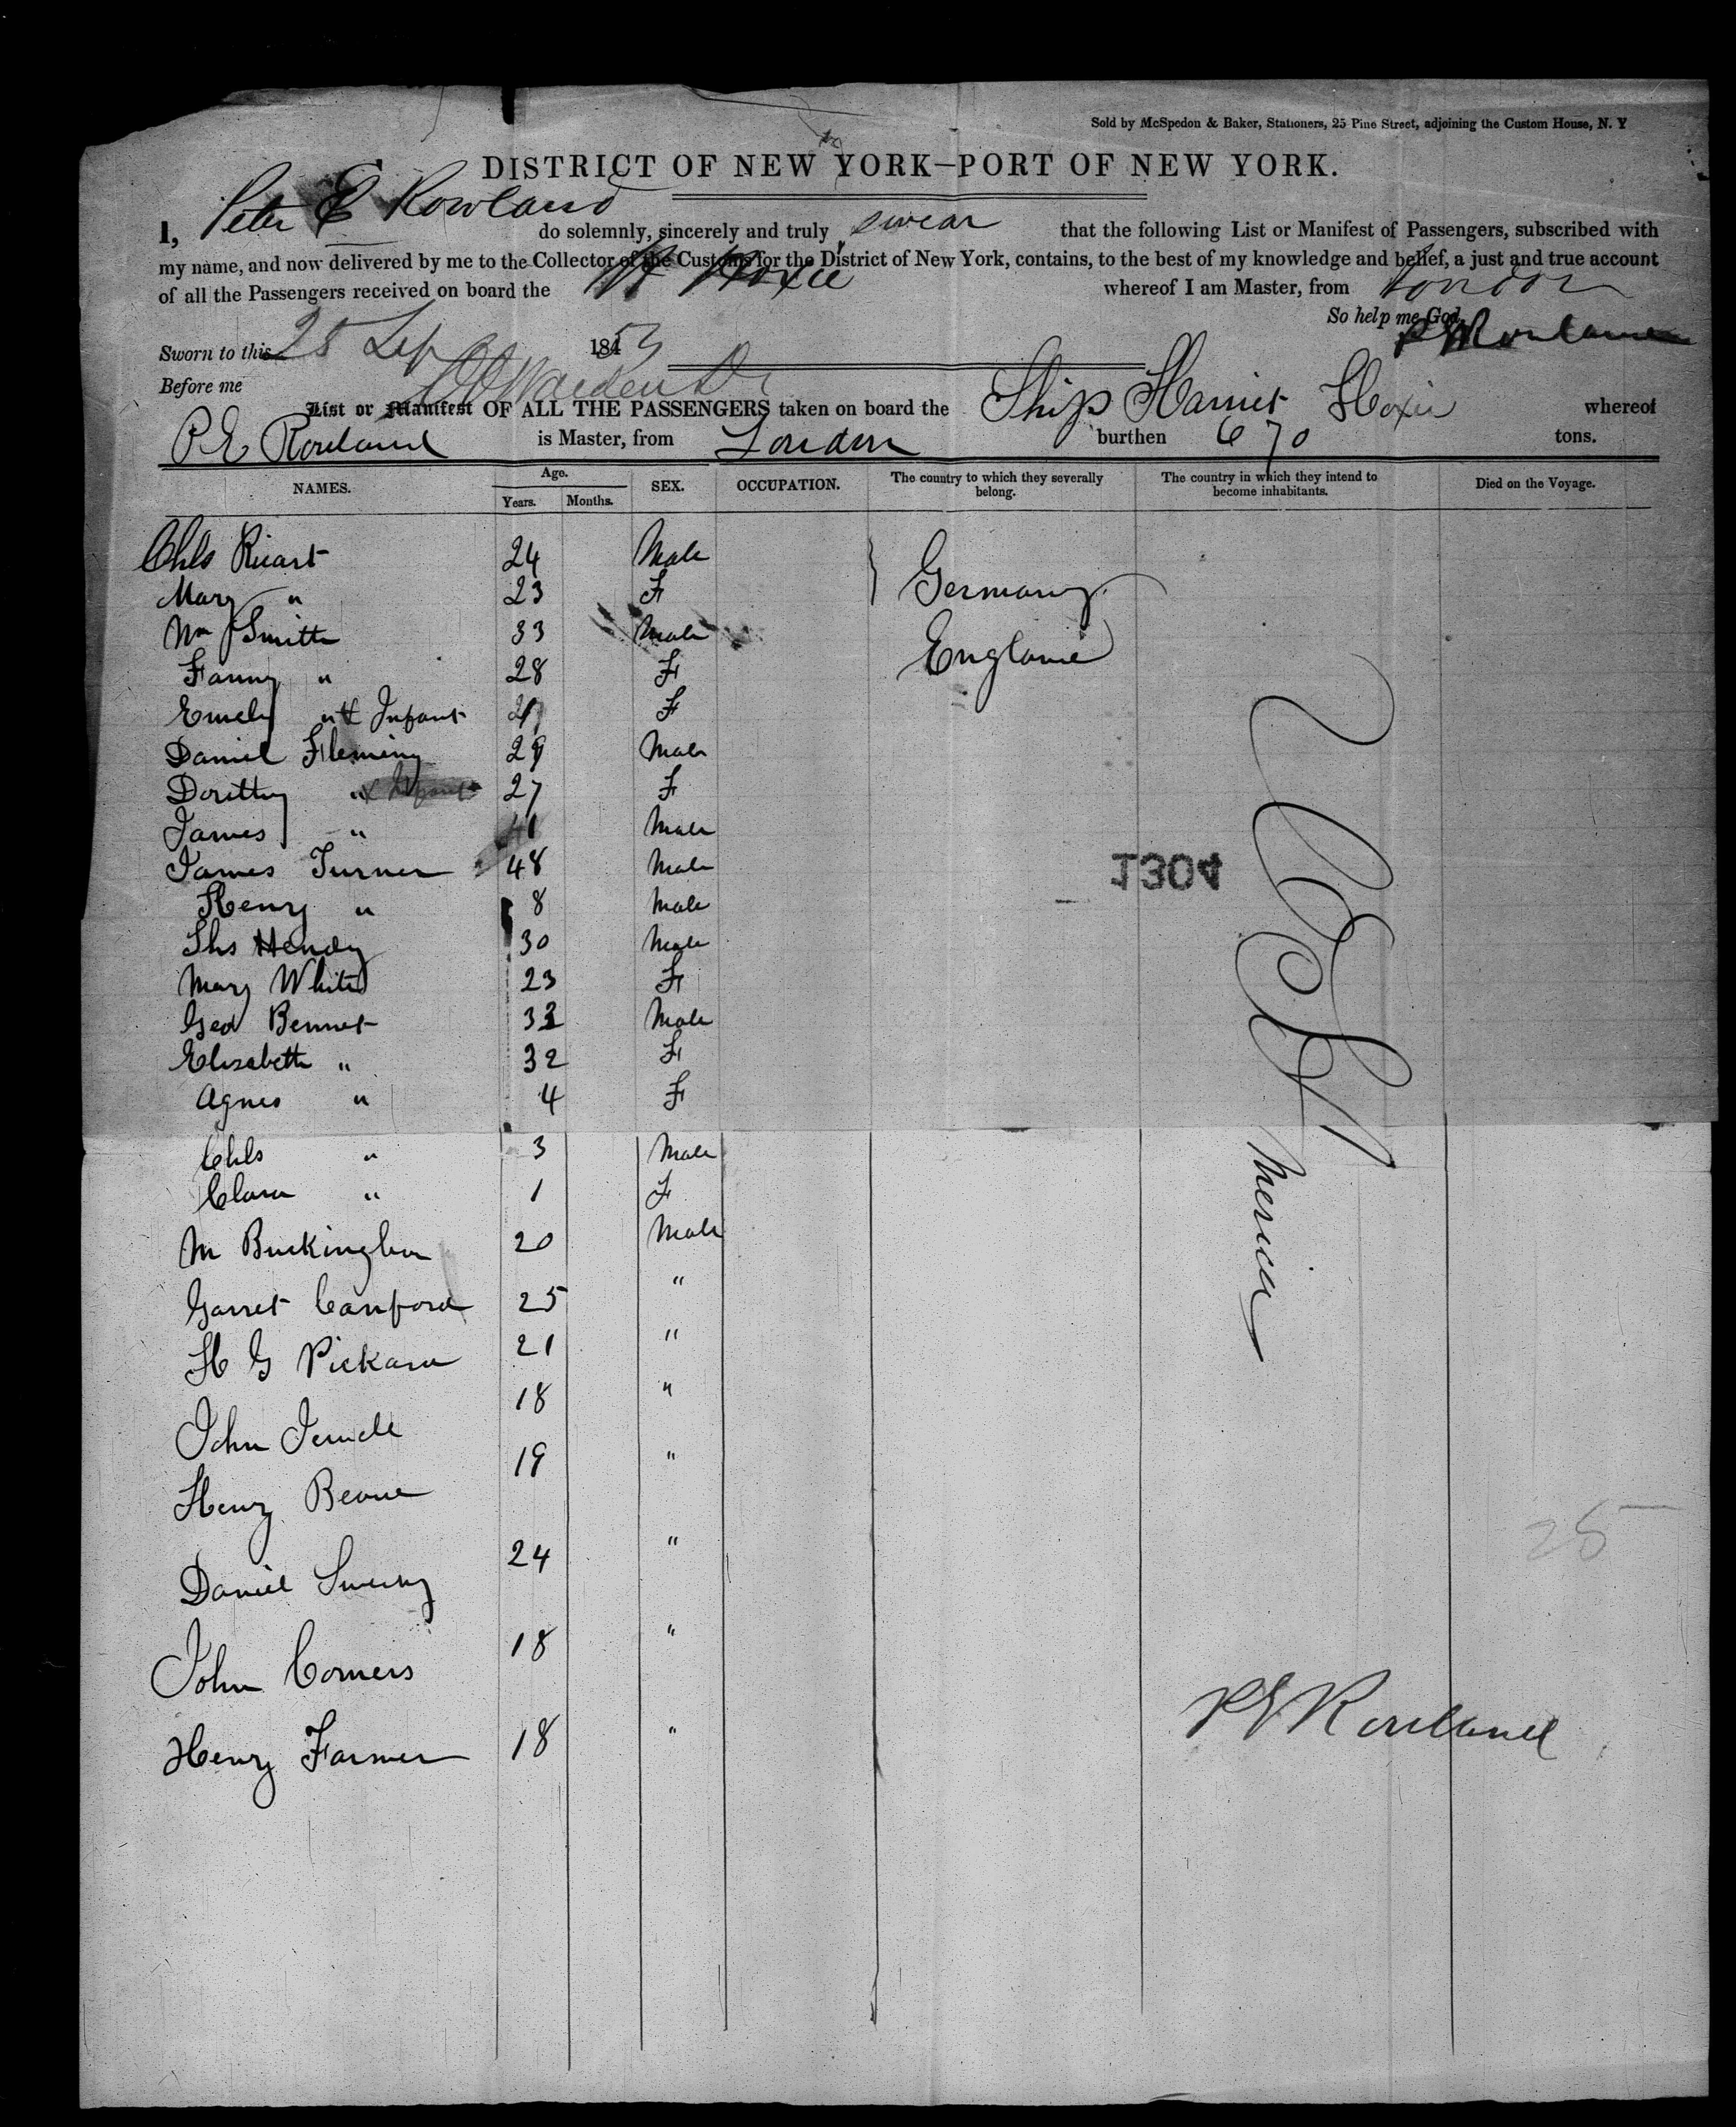 Sold by McSpedon & Baker, Stationers, 25 Pine Street, adjoining the Custom House, N. Y
DISTRICT OF NEW YORK—PORT OF NEW YORK.
I, Peter E Rowland do solemnly, sincerely and truly swear that the following List or Manifest of Passengers, subscribed with
my name, and now delivered by me to the Collector of the Customs for the District of New York, contains, to the best of my knowledge and belief, a just and true account
of all the Passengers received on board the H Hoxie whereof I am Master, from London
So help me God.
Sworn to this 28 Sep 1853 P E Rowland
Before me
List or Manifest OF ALL THE PASSENGERS taken on board the Ship Harriet Hoxie whereof
P E Rowland is Master, from London burthen 670 tons.
NAMES. Age. Years. Months. SEX. OCCUPATION. The country to which they severally belong. The country in which they intend to become inhabitants. Died on the Voyage.
Chls Ricart 24 Male Germany
Mary " 23 F
Wm Smith 33 Male England
Fanny " 28 F
Emely " & Infant F
Daniel Fleming 29 Male
Dorithy " & Infant 27 F
James " Male
James Turner 48 Male
Henry " 8 Male
1304
Ths Hendy 30 Male
Mary White 23 F
Geo Bennet 33 Male
Elisabeth " 32 F
Agnes " 4 F
Chls " 3 Male
Clara " 1 F
M Buckingham 20 Male
Garret Canford 25 "
H G Pickard 21 "
John 18 "
Henry Beane 19 "
Daniel Sweeny 24 "
John Comers 18 "
Henry Farmer 18 "
America
25
P E Rowland